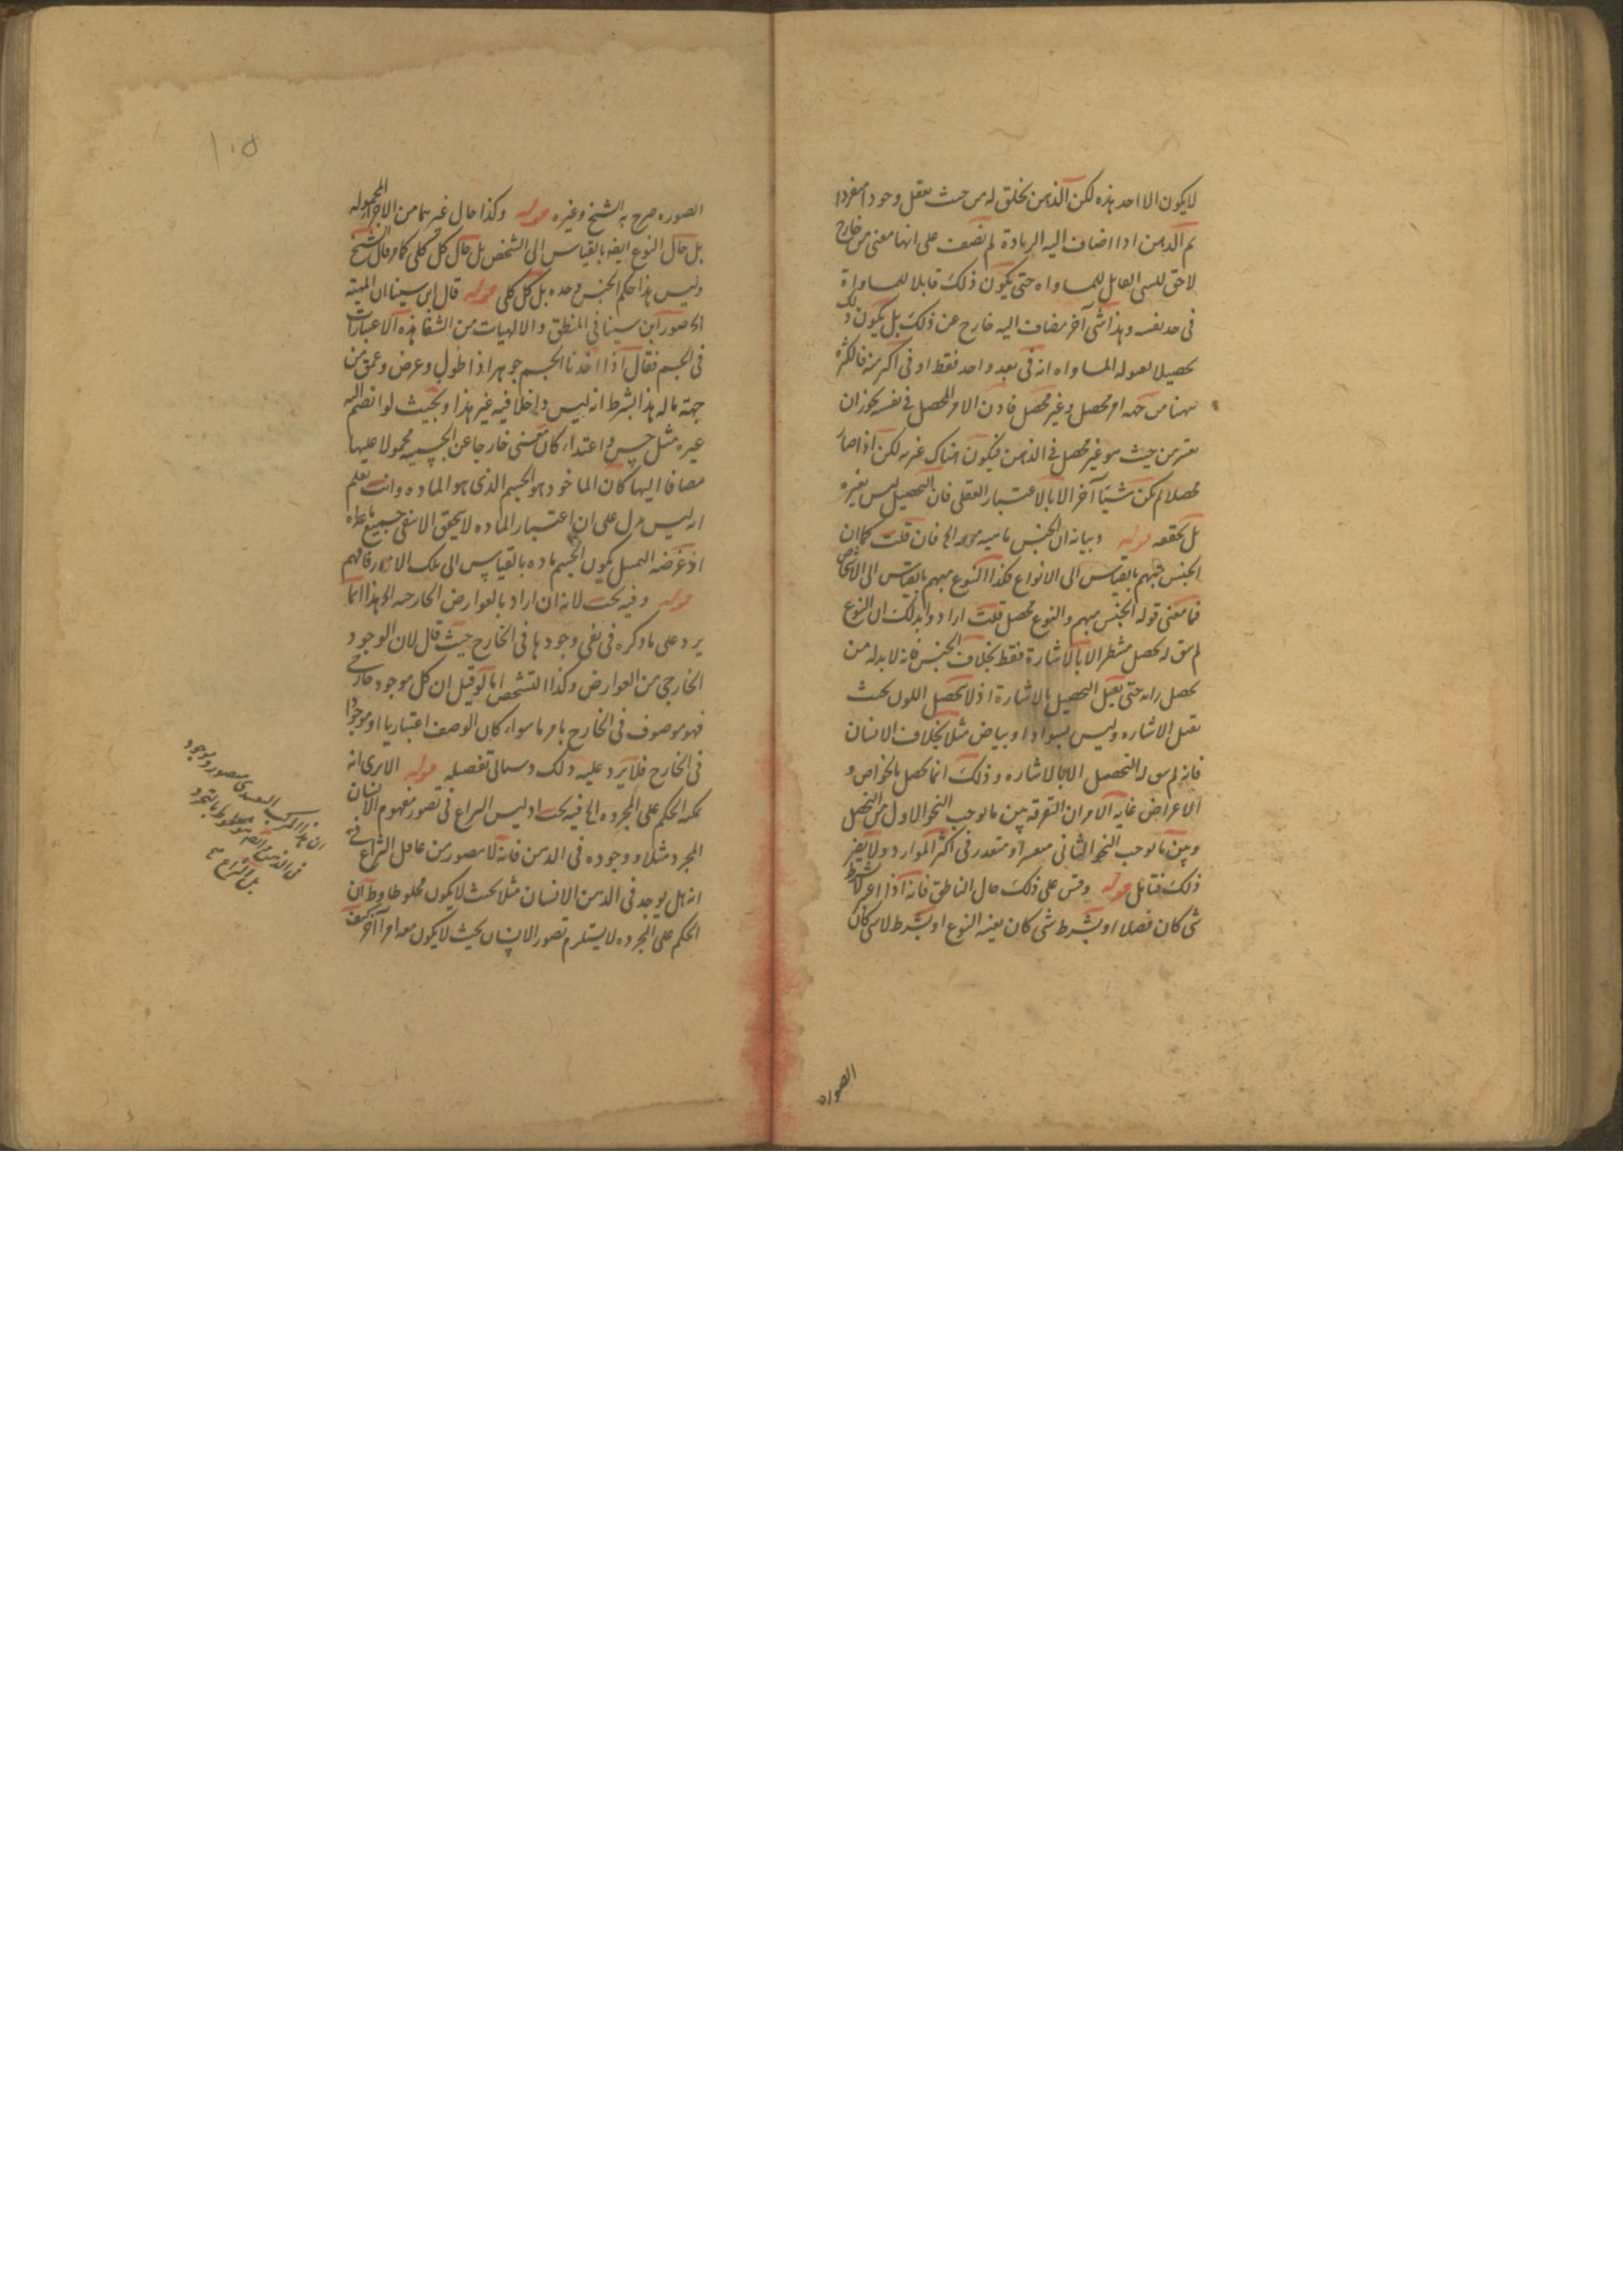 لا يكون الا احد هذه لكن الذهن يخلق له من حيث يعقل وجودا مفردا
ثم الذهن اذا اضاف اليه الزيادة لم يضف على انها معنى من خارج
لاحق للشى القابل للمساواه حتى يكون ذلك قابلا للمساواة
فى حد نفسه وهذا شى آخر مضاف اليه خارج عن ذلك بل يكون ذلك
تحصيلا لقبوله المساواه انه فى بعد واحد فقط او فى اكثر منه فالكثرة
ههنا من جهه امر محصل وغير محصل فان الامر المحصل فى نفسه يجوز ان
يعتبر من حيث هو غير محصل فى الذهن فيكون هناك غيريه لكن اذا صار
محصلا لم يكن شيئا آخر الا بالاعتبار العقلى فان التحصيل ليس يغيره
بل يحققه قوله وبيانه ان الجنس ماهيه مبهمه الخ فان قلت كما ان
الجنس مبهم بالقياس الى الانواع فكذا النوع مبهم بالقياس الى الاشخاص
فما معنى قوله الجنس مبهم والنوع محصل قلت ارادوا بذلك ان النوع
لم يبق له تحصل منتظر الا بالاشارة فقط بخلاف الجنس فانه لا بد له من
تحصل حتى يقبل التحصيل بالاشارة اذ لا تحصيل اللون بحيث
يقبل الاشاره وليس بسواد او بياض مثلا بخلاف الانسان
فانه لم يبق له التحصيل الا بالاشاره وذلك انما يحصل بالخواص و
الاعراض غايه الامر ان التفرقه بين ما يوجب النحو الاول من التحصل
وبين ما يوجب النحو الثانى متعسر او متعذر فى اكثر الموارد ولا يضر
ذلك فتامل قوله وقس على ذلك حال الناطق فانه اذا اعتبر لا بشرط
شى كان فصلا او بشرط شى كان بعينه النوع او بشرط لا شى كان
الصوره
الصوره صرح به الشيخ وغيره قوله وكذا حال غيرهما من الاجزاء المحموله
بل حال النوع ايضه بالقياس الى الشخص بل حال كل كلى كما مر قال الشيخ
وليس هذا حكم الجنس وحده بل كل كلى قوله قال ابن سينا ان الماهيه
الخ صور ابن سينا فى المنطق والالهيات من الشفا هذه الاعتبارات
فى الجسم فقال اذا اخذنا الجسم جوهرا ذا طول وعرض وعمق من
جهة ما له هذا بشرط انه ليس داخلا فيه غير هذا وبحيث لو انضم اليه
غيره مثل حس و اغتذاء كان معنى خارجا عن الجسميه محمولا عليها
مضافا اليها كان الماخوذ هو الجسم الذى هو الماده وانت تعلم
انه ليس يدل على ان اعتبار الماده لا يتحقق الا بنفى جميع ما عداه
اذ غرضه التمثيل بكون الجسم ماده بالقياس الى تلك الامور فافهم
قوله وفيه بحث لانه ان اراد بالعوارض الخارجيه الخ هذا انما
يرد على ما ذكره فى نفى وجودها فى الخارج حيث قال لان الوجود
الخارجى من العوارض وكذا التشخص اما لو قيل ان كل موجود خارجى
فهو موصوف فى الخارج بامر ما سواء كان الوصف اعتباريا او موجودا
فى الخارج فلا يرد عليه ذلك وسياتى تفصيله قوله الا يرى انه
يمكنه الحكم على المجرده الخ فيه بحث اذ ليس النزاع فى تصور مفهوم الانسان
المجرد مثلا ووجوده فى الذهن فانه لا يتصور من عاقل النزاع فى
انه هل يوجد فى الذهن الانسان مثلا بحيث لا يكون مخلوطا وظ ان
الحكم على المجرده لا يستلزم تصور الانسان بحيث لا يكون معه امرا آخر كيف
ان هذا المركب التقييدى متصور وموجود
بل النزاع
١٠٥